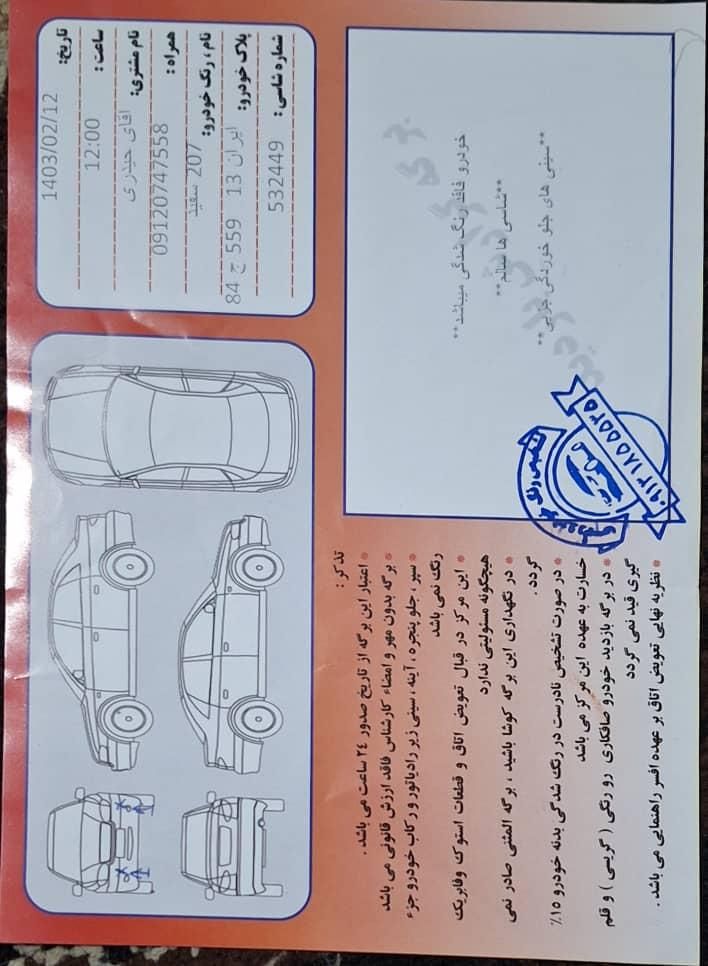 تاریخ: 1403/02/12
ساعت: 12:00
نام مشتری: اقای حیدری
همراه: 09120747558
نام، رنگ خودرو: 207 سفید
پلاک خودرو: ایران 13 559 ج 84
شماره شاسی: 532449
خودرو فاقد رنگ شدگی میباشد**
**شاسی ها سالم**
**سینی های جلو خوردگی جزیی**
تشخیص رنگ خودرو
۰۹۱۲۱۸۵۵۵۲۵
تذکر:
* اعتبار این برگه از تاریخ صدور ۲۴ ساعت می باشد.
* برگه بدون مهر و امضاء کارشناس فاقد ارزش قانونی می باشد
* سپر، جلو پنجره، آینه، سینی زیر رادیاتور و رکاب خودرو جزء
رنگ نمی باشد
* این مرکز در قبال تعویض اتاق و قطعات استوک وفابریک
هیچگونه مسئولیتی ندارد
* در نگهداری این برگه کوشا باشید، برگه المثنی صادر نمی
گردد.
* در صورت تشخیص نادرست در رنگ شدگی بدنه خودرو ۱۵٪
خسارت به عهده این مرکز می باشد
* در برگه بازدید خودرو صافکاری رو رنگی (گریسی) و قلم
گیری قید نمی گردد
* نظریه نهایی تعویض اتاق بر عهده افسر راهنمایی می باشد.